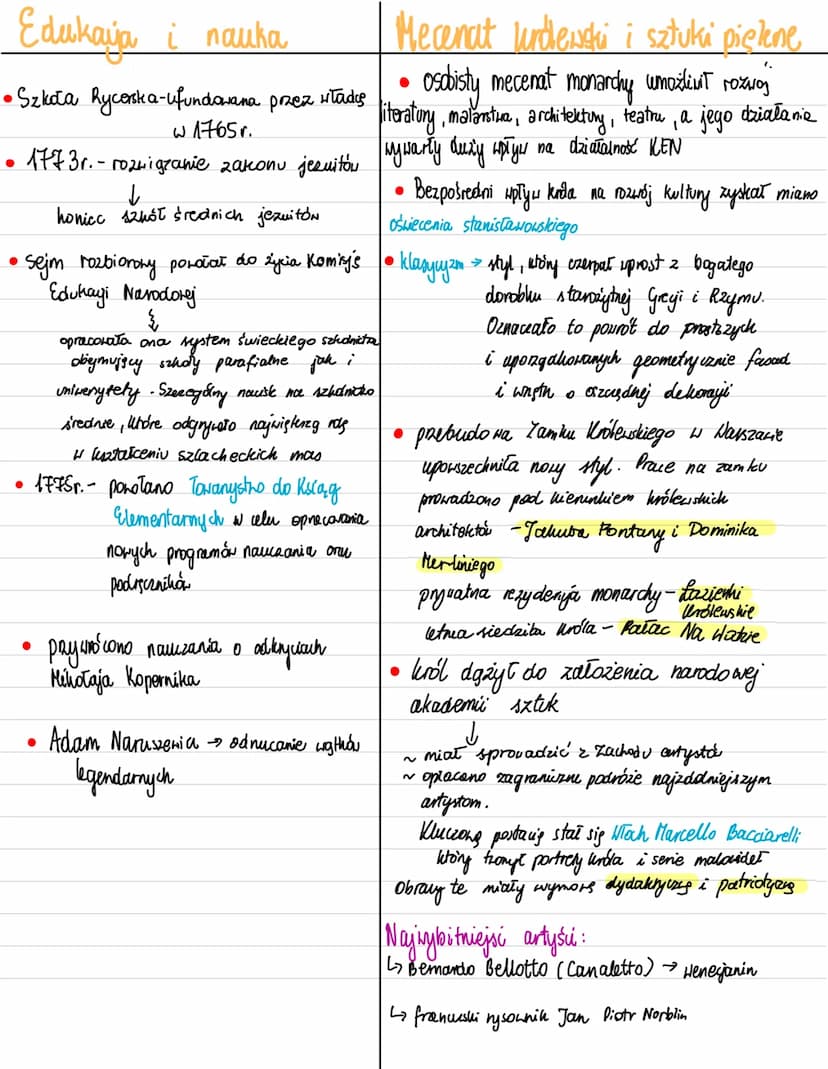 Edukacja i nauka
• Szkoła Rycerska - ufundowana przez władcę
w 1765r.
• 1773r. - rozwiązanie zakonu jezuitów
↓
koniec szkół średnich jezuitów
• Sejm rozbiorowy powołał do życia Komisję
Edukacji Narodowej
↓
opracowała ona system świeckiego szkolnictwa
obejmujący szkoły parafialne jak i
uniwersytety. Szczególny nacisk na szkolnictwo
średnie, które odgrywało największą rolę
w kształceniu szlacheckich mas
• 1775r. - powołano Towarzystwo do Ksiąg
Elementarnych w celu opracowania
nowych programów nauczania oraz
podręczników
• przywrócono nauczania o odkryciach
Mikołaja Kopernika
• Adam Naruszewicz → odrzucanie wątków
legendarnych
Mecenat królewski i sztuki piękne
• osobisty mecenat monarchy umożliwił rozwój
literatury, malarstwa, architektury, teatru, a jego działania
wywarły duży wpływ na działalność KEN
• Bezpośredni wpływ króla na rozwój kultury zyskał miano
oświecenia stanisławowskiego
• klasycyzm → styl, który czerpał wprost z bogatego
dorobku starożytnej Grecji i Rzymu.
Oznaczało to powrót do prostszych
i uporządkowanych geometrycznie fasad
i wnętrz o oszczędnej dekoracji
• przebudowa Zamku Królewskiego w Warszawie
upowszechniła nowy styl. Prace na zamku
prowadzono pod kierunkiem królewskich
architektów - Jakuba Fontany i Dominika
Merliniego
prywatna rezydencja monarchy - Łazienki
Królewskie
letnia siedziba króla - Pałac Na Wodzie
• król dążył do założenia narodowej
akademii sztuk
↓
~ miał sprowadzić z Zachodu artystów
~ opłacano zagraniczne podróże najzdolniejszym
artystom.
Kluczową postacią stał się Włoch Marcello Bacciarelli
który tworzył portrety króla i serie malowideł
Obrazy te miały wymowę dydaktyczną i patriotyczną
Najwybitniejsi artyści:
↳ Bernardo Bellotto (Canaletto) → wenecjanin
↳ francuski rysownik Jan Piotr Norblin